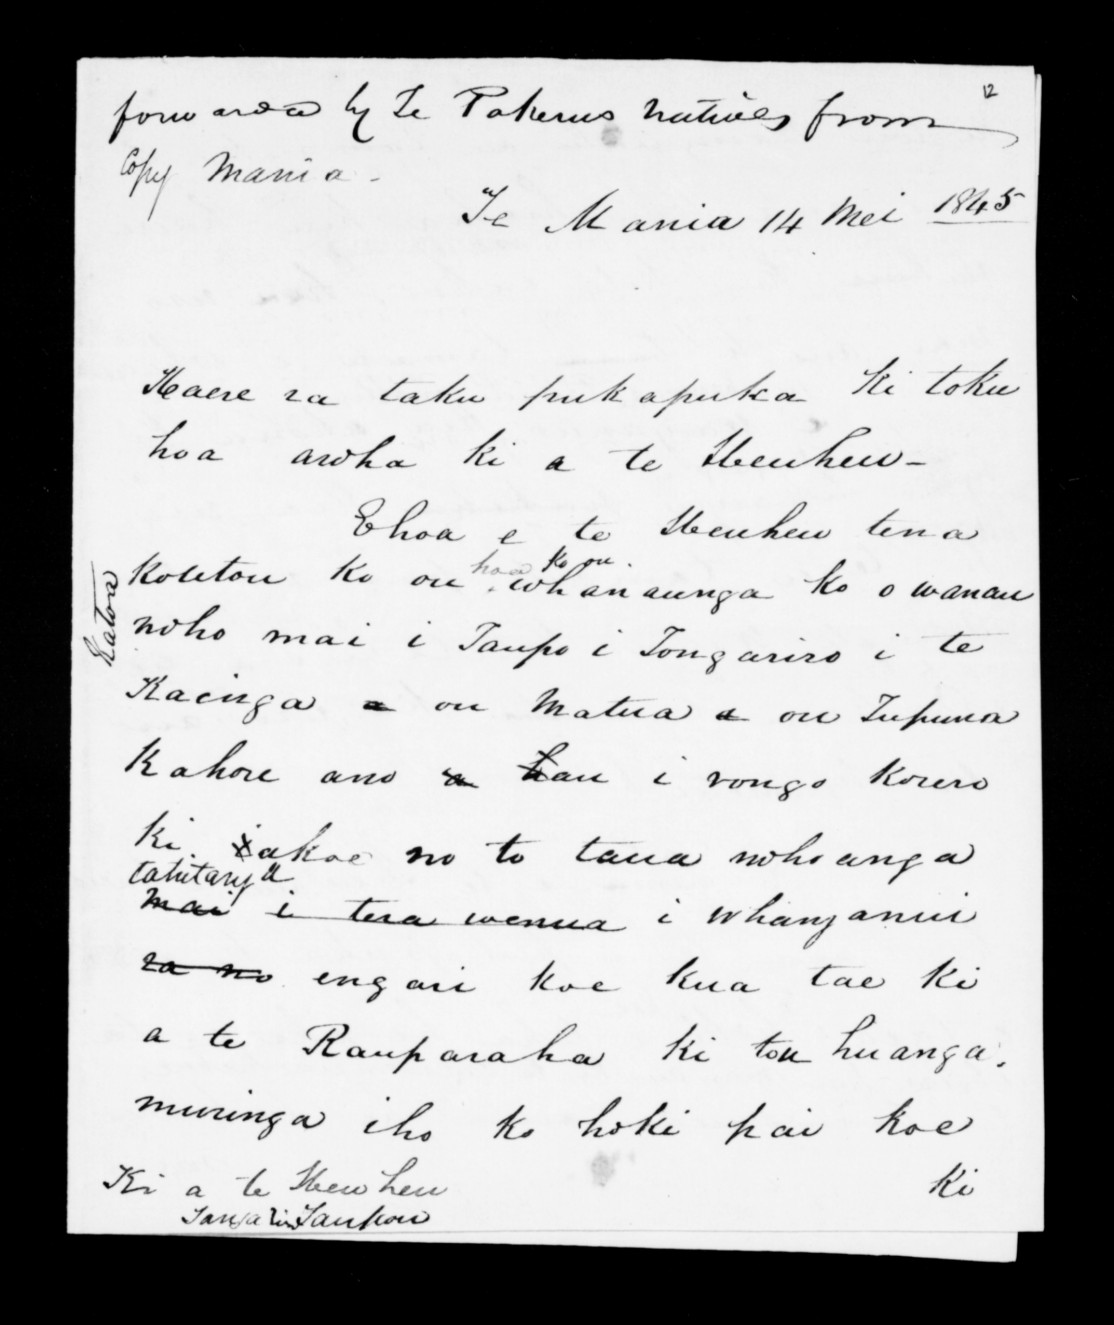 12
forwarded by Te Pakerus natives from
Copy Mania -
Te Mania 14 Mei 1845
Haere ra taku pukapuka ki toku
hoa aroha ki a te Heuheu -
Ehoa e te Heuheu tena
koutou ko ou hoa ko ou whanaunga ko o wanau
Katoa
noho mai i Taupo i Tongariro i te
Kainga a ou Matua a ou Tupuna
Kahore ano a hau i rongo korero
ki iakoe no to taua nohoanga
tahitanga
mai i tera wenua i Whanganui
ra no engari koe kua tae ki
a te Rauparaha ki tou huanga.
muringa iho ko hoki pai koe
ki
Ki a te Heuheu